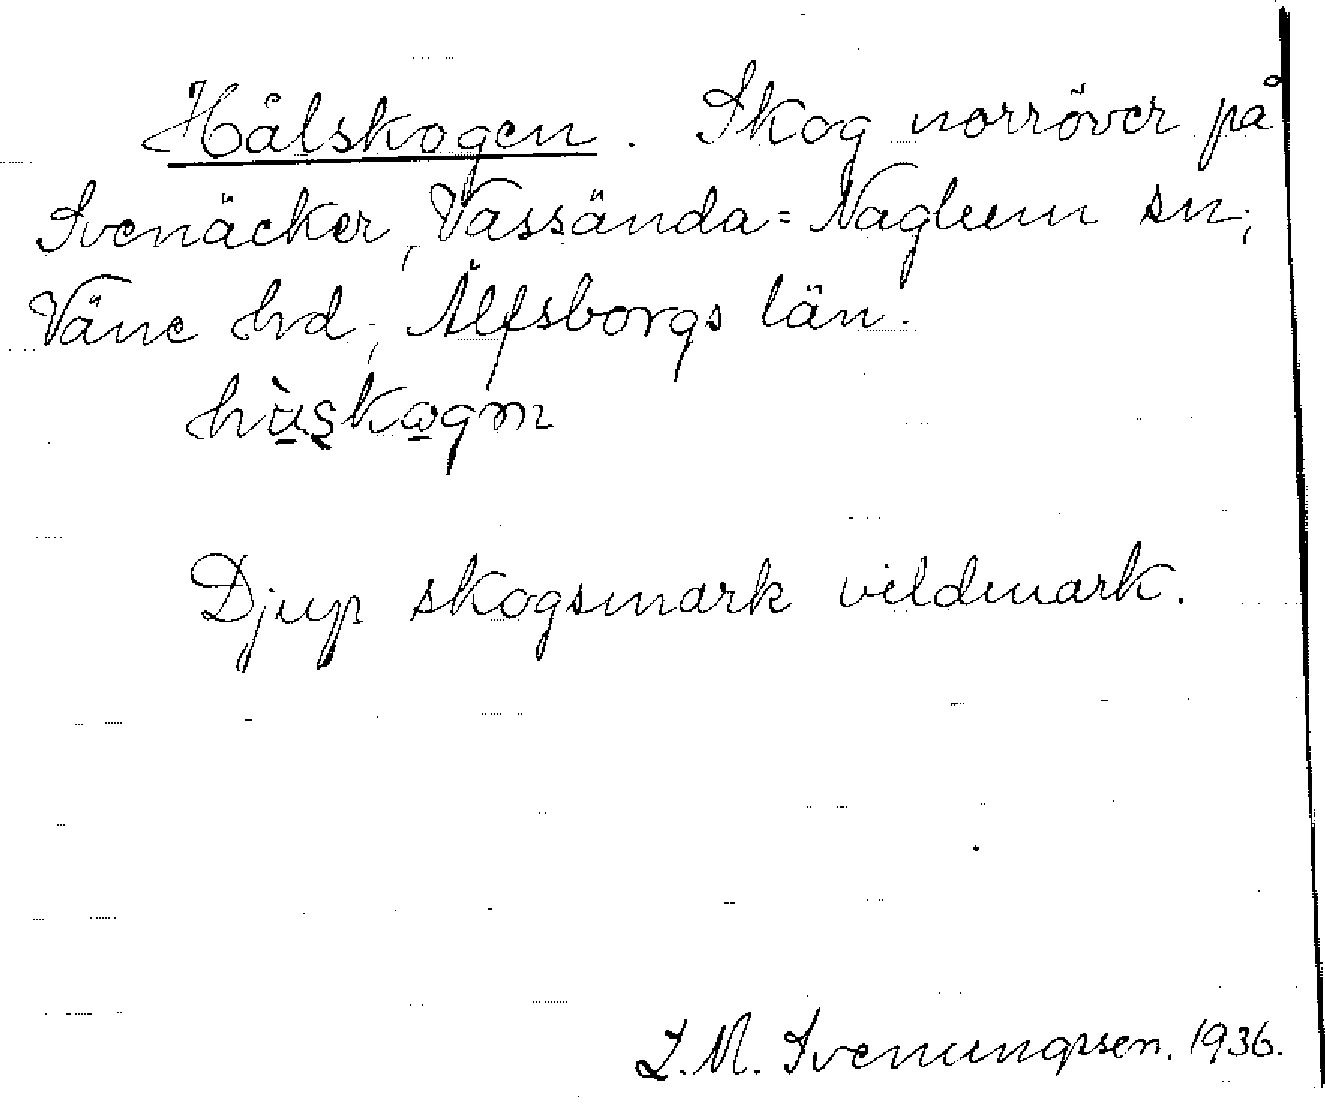 Hålskogen. Skog norröver på
Svenäcker, Vassända=Naglum sn;
Väne hd, Älfsborgs län.
hàskogm
Djup skogsmark vildmark.
L.M. Svenungssen. 1936.